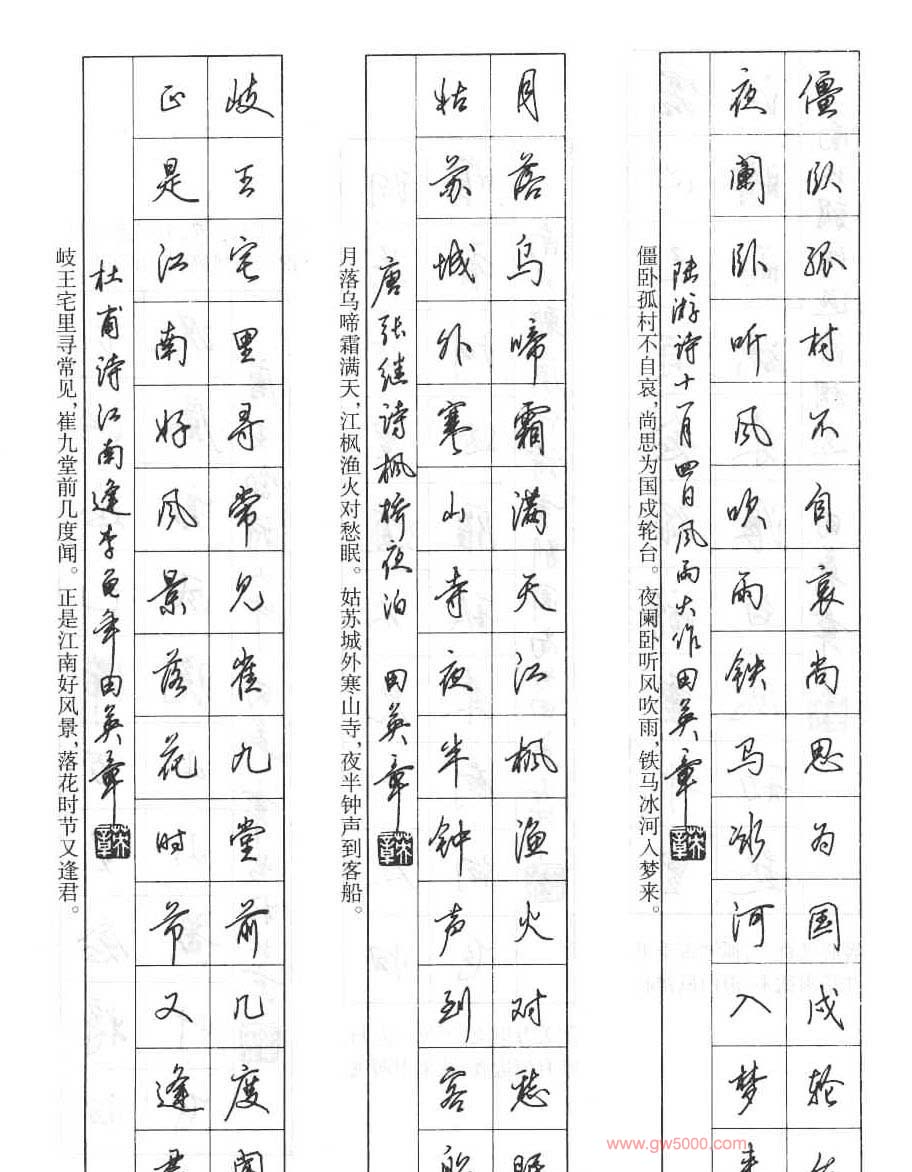 僵卧孤村不自哀尚思为国戍轮台
夜阑卧听风吹雨铁马冰河入梦来
陆游诗十一月四日风雨大作田英章
英章
僵卧孤村不自哀,尚思为国戍轮台。夜阑卧听风吹雨,铁马冰河入梦来。
月落乌啼霜满天江枫渔火对愁眠
姑苏城外寒山寺夜半钟声到客船
唐张继诗枫桥夜泊 田英章
英章
月落乌啼霜满天,江枫渔火对愁眠。姑苏城外寒山寺,夜半钟声到客船。
岐王宅里寻常见崔九堂前几度闻
正是江南好风景落花时节又逢君
杜甫诗江南逢李龟年田英章
英章
岐王宅里寻常见,崔九堂前几度闻。正是江南好风景,落花时节又逢君。
www.gw5000.com